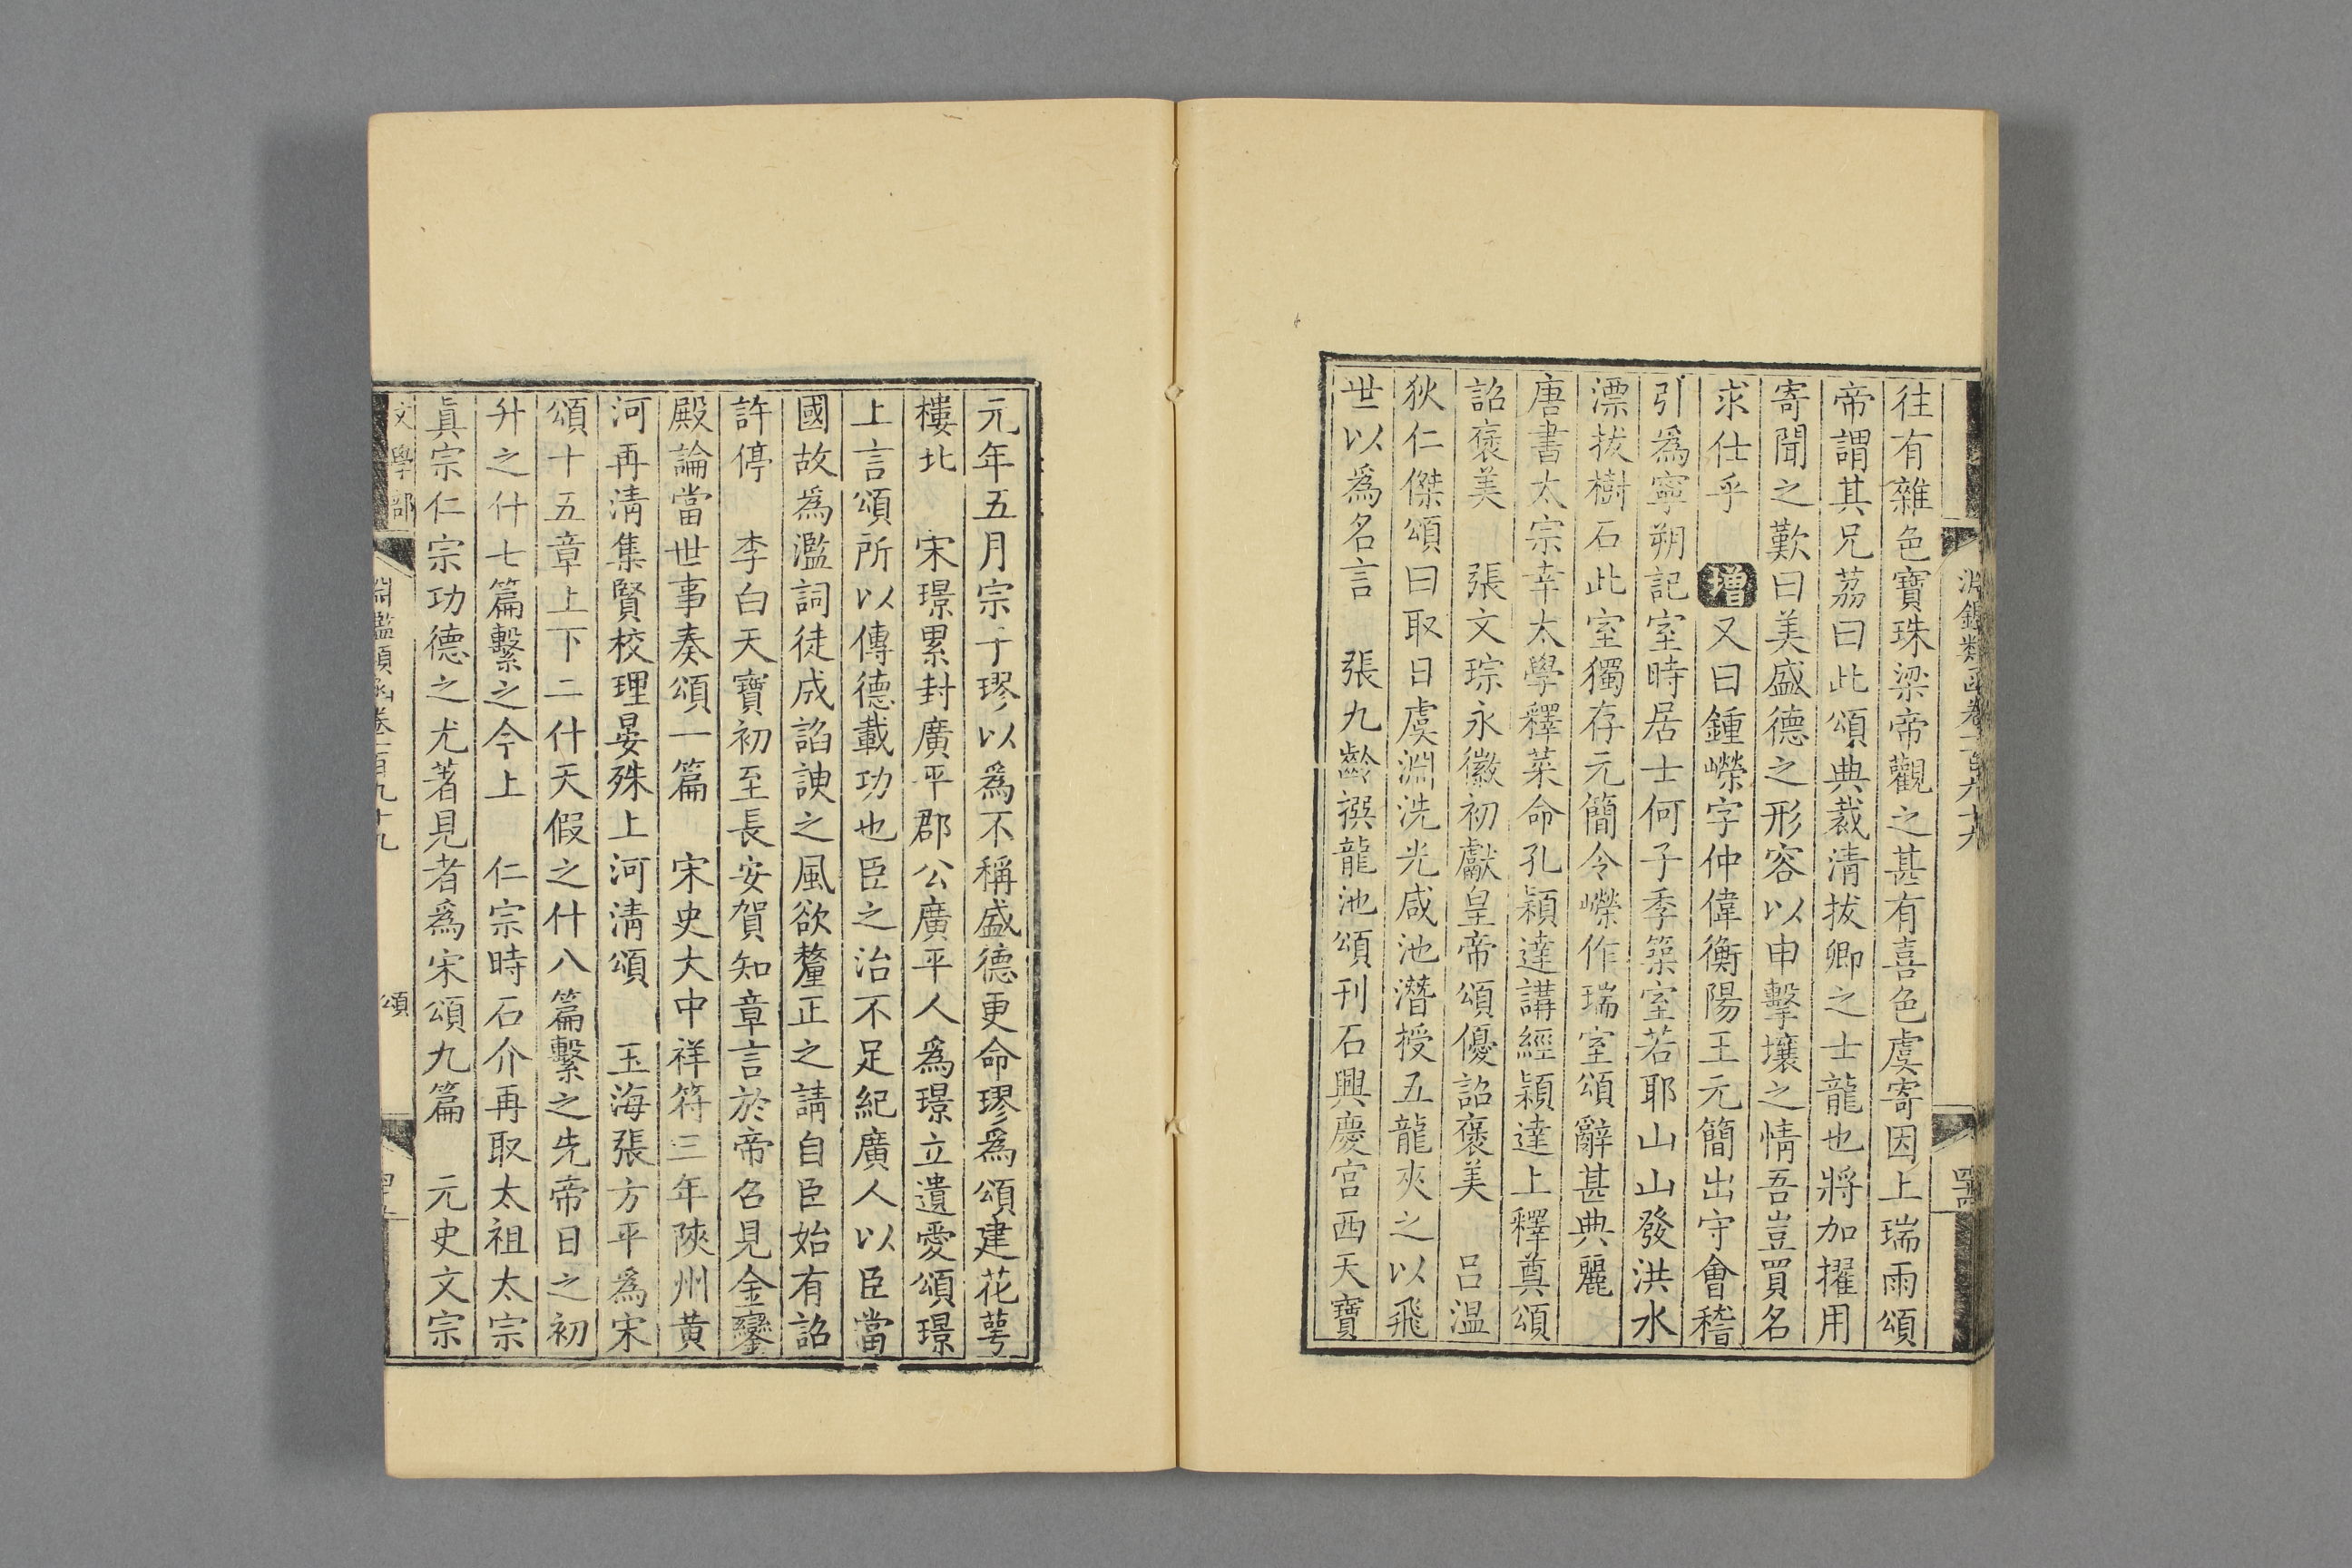 往有雜色寶珠梁帝觀之甚有喜色虞寄因上瑞雨頌
帝謂其兄荔曰此頌典裁清拔卿之士龍也將加擢用
寄聞之歎曰美盛德之形容以申擊壤之情吾豈買名
求仕乎 增又曰鍾嶸字仲偉衡陽王元簡出守會稽
引爲寧朔記室時居士何子季築室若耶山山發洪水
漂拔樹石此室獨存元簡令嶸作瑞室頌辭甚典麗
唐書太宗幸太學釋菜命孔穎達講經穎達上釋奠頌
詔褒美 張文琮永徽初獻皇帝頌優詔褒美 呂溫
狄仁傑頌曰取日虞淵洗光咸池潛授五龍夾之以飛
世以爲名言 張九齡撰龍池頌刊石興慶宮西天寶
元年五月宗子璆以爲不稱盛德更命璆爲頌建花萼
樓北 宋璟累封廣平郡公廣平人爲璟立遺愛頌璟
上言頌所以傳德載功也臣之治不足紀廣人以臣當
國故爲濫詞徒成諂諛之風欲釐正之請自臣始有詔
許停 李白天寶初至長安賀知章言於帝召見金鑾
殿論當世事奏頌一篇 宋史大中祥符三年陝州黃
河再清集賢校理晏殊上河清頌 玉海張方平爲宋
頌十五章上下二什天假之什八篇繫之先帝日之初
升之什七篇繫之今上 仁宗時石介再取太祖太宗
眞宗仁宗功德之尤著見者爲宋頌九篇 元史文宗
文學部
淵鑑類函卷一百九十九
頌